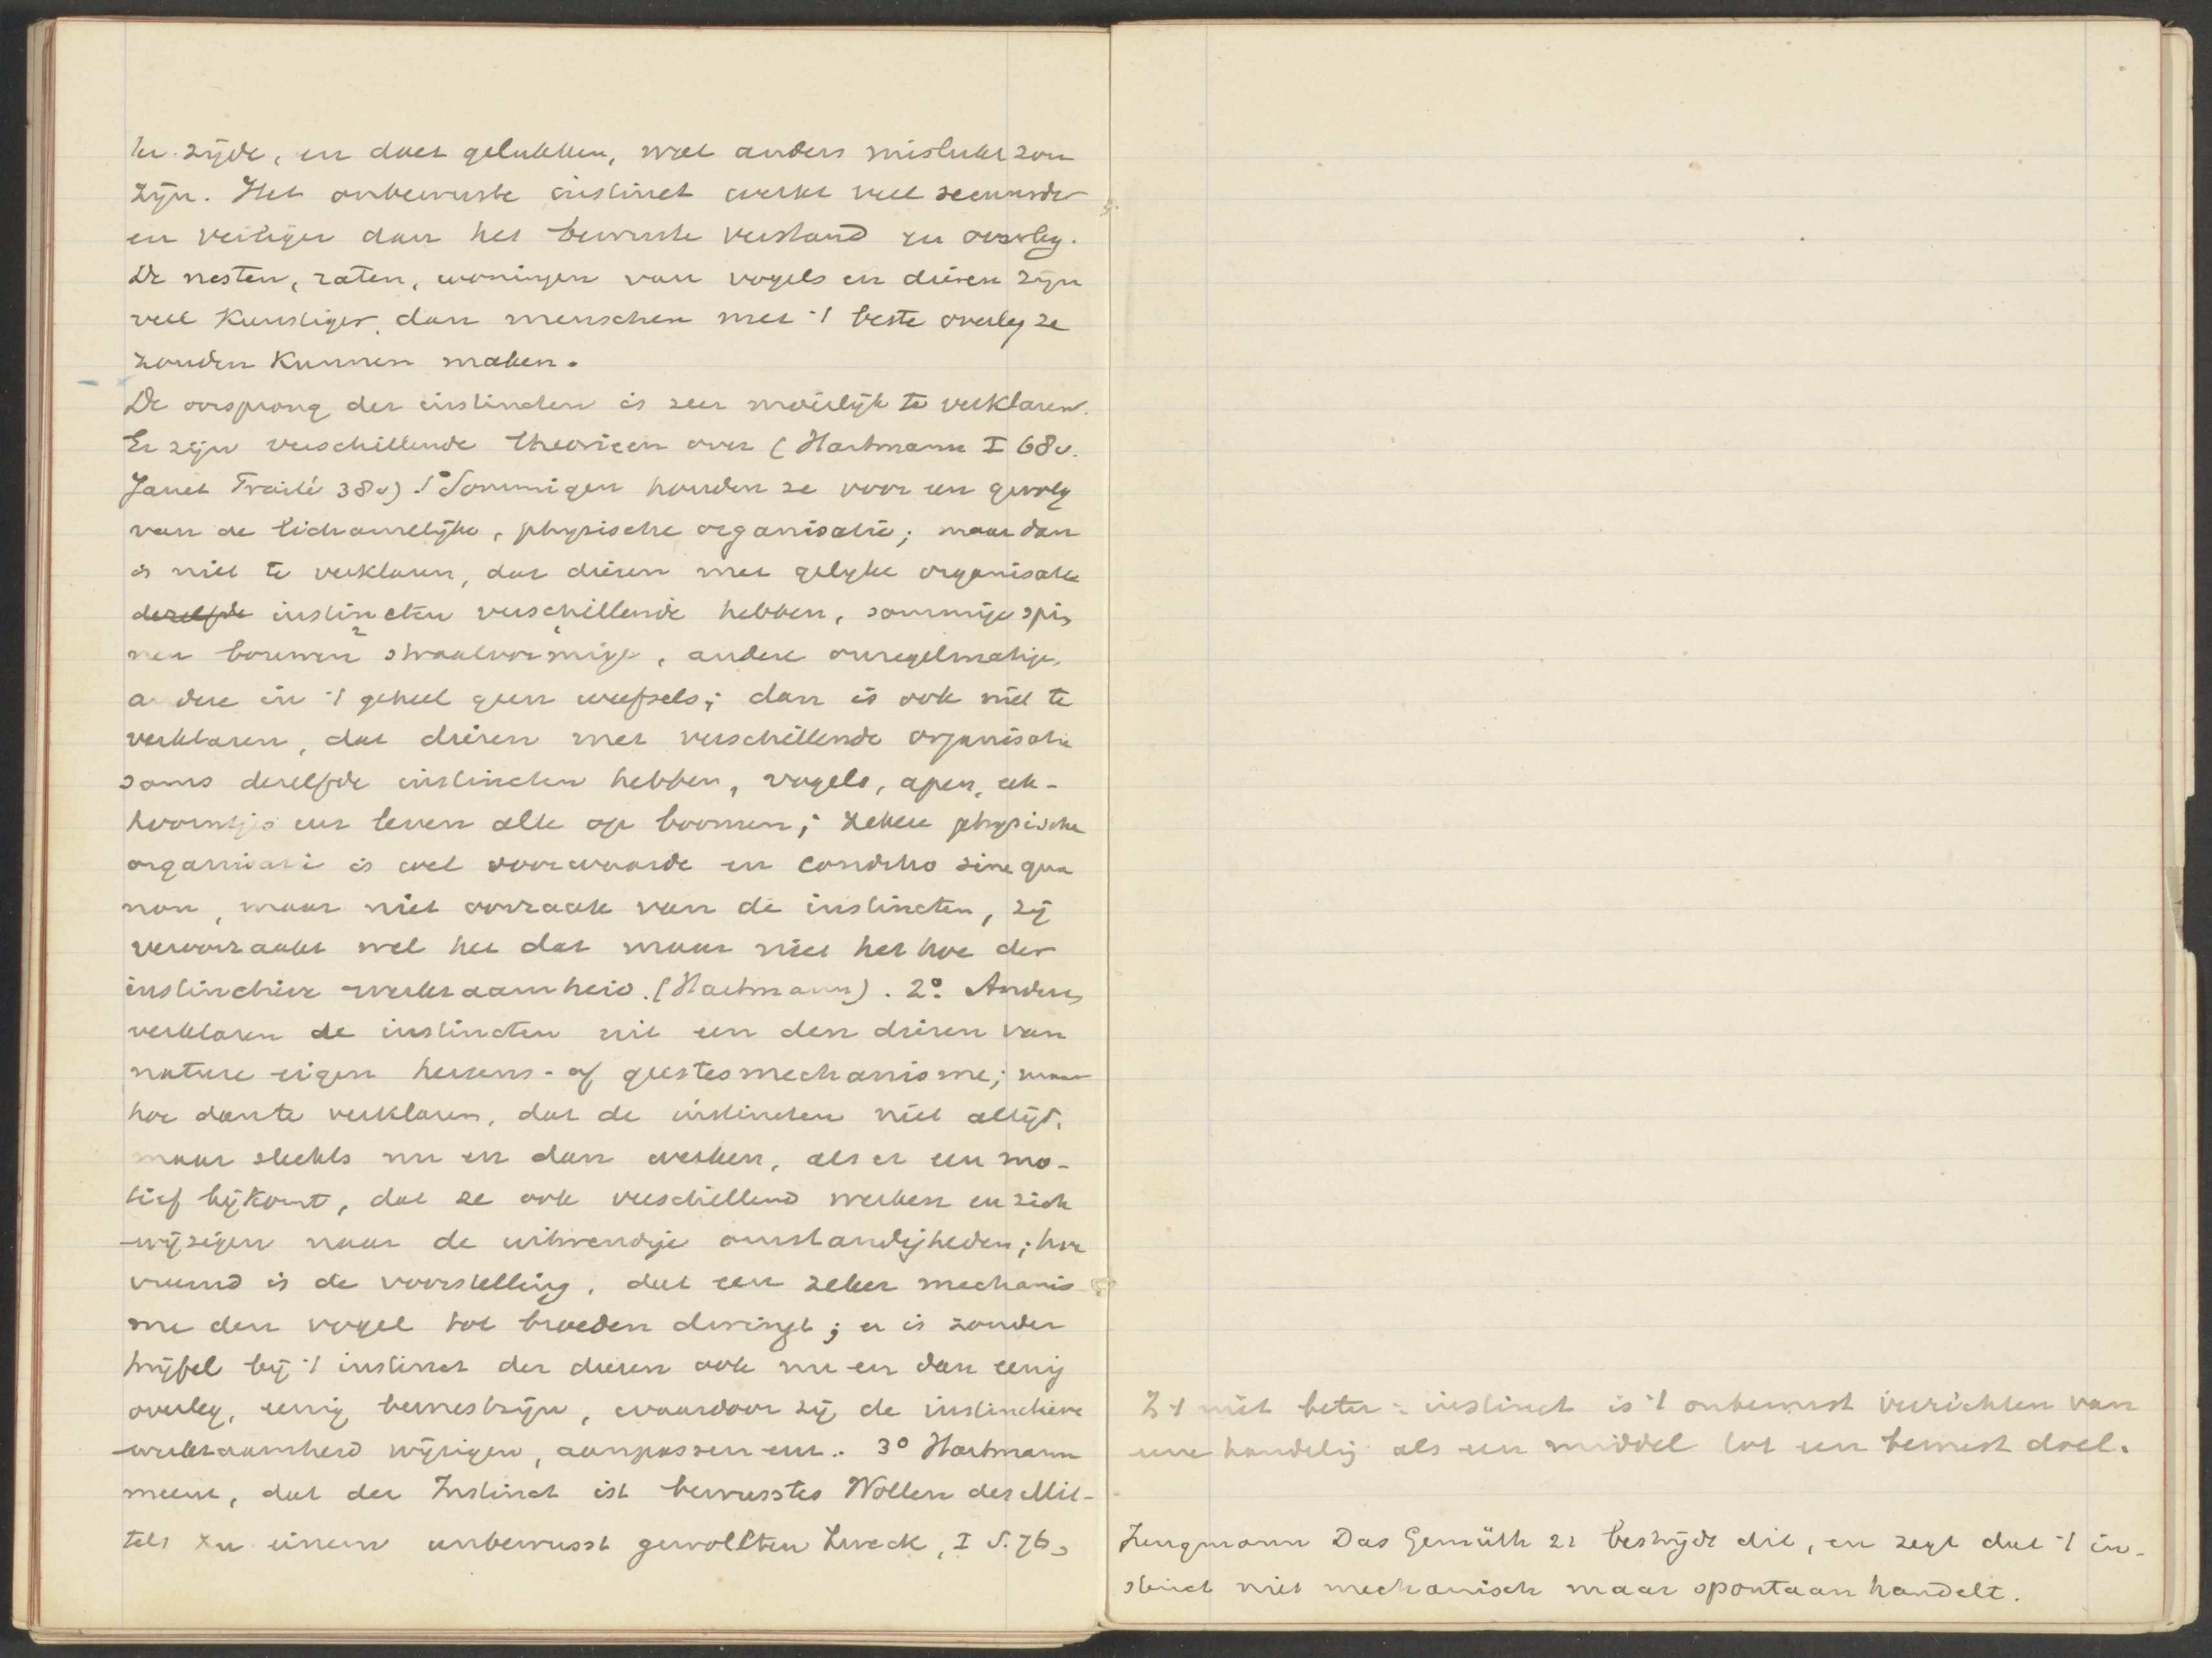 ter zijde, en doet gelukken, wat anders mislukt zou
zijn. Het onbewuste instinct werkt veel secuurder
en veiliger dan het bewuste verstand en overleg.
De nesten, raten, woningen van vogels en dieren zijn
veel kunstiger dan menschen met 't beste overleg ze
zouden kunnen maken.
De oorsprong der instincten is zeer moeilijk te verklaren.
Er zijn verschillende theorieen over (Hartmann I 68v.
Janet Traité 38v) 1° Sommigen houden ze voor een gevolg
van de lichamelijke, physische organisatie; maar dan
is niet te verklaren, dat dieren met gelijke organisatie
dezelfde instincten verschillende hebben, sommige spin
nen bouwen straalvormige, andere onregelmatige,
andere in 't geheel geen weefsels; dan is ook niet te
verklaren, dat dieren met verschillende organisatie
soms dezelfde instincten hebben, vogels, apen, eek-
hoorntjes enz leven alle op boomen; zekere physische
organisatie is wel voorwaarde en conditio sine qua
non, maar niet oorzaak van de instincten, zij
veroorzaakt wel het dat maar niet het hoe der
instinctieve werkzaamheid. (Hartmann). 2° Anderen
verklaren de instincten uit een den dieren van
nature eigen hersens- of geestesmechanisme; maar
hoe dan te verklaren, dat de instincten niet altijd,
maar slechts nu en dan werken, als er een mo-
tief bijkomt, dat ze ook verschillend werken en zich
wijzigen naar de uitwendige omstandigheden; hoe
vreemd is de voorstelling, dat een zeker mechanis
me den vogel tot broeden dwingt; er is zonder
twijfel bij 't instinct der dieren ook nu en dan eenig
overleg, eenig bewustzijn, waardoor zij de instinctieve
werkzaamheid wijzigen, aanpassen enz. 3° Hartmann
meent, dat der Instinct ist bewusstes Wollen des Mit-
tels zu einem unbewusst gewollten Zweck, I S. 76,
Is 't niet beter: instinct is 't onbewust verrichten van
eene handeling als een middel tot een bewust doel.
Jungmann Das Gemüth 21 bestrijdt dit, en zegt dat 't in-
stinct niet mechanisch maar spontaan handelt.